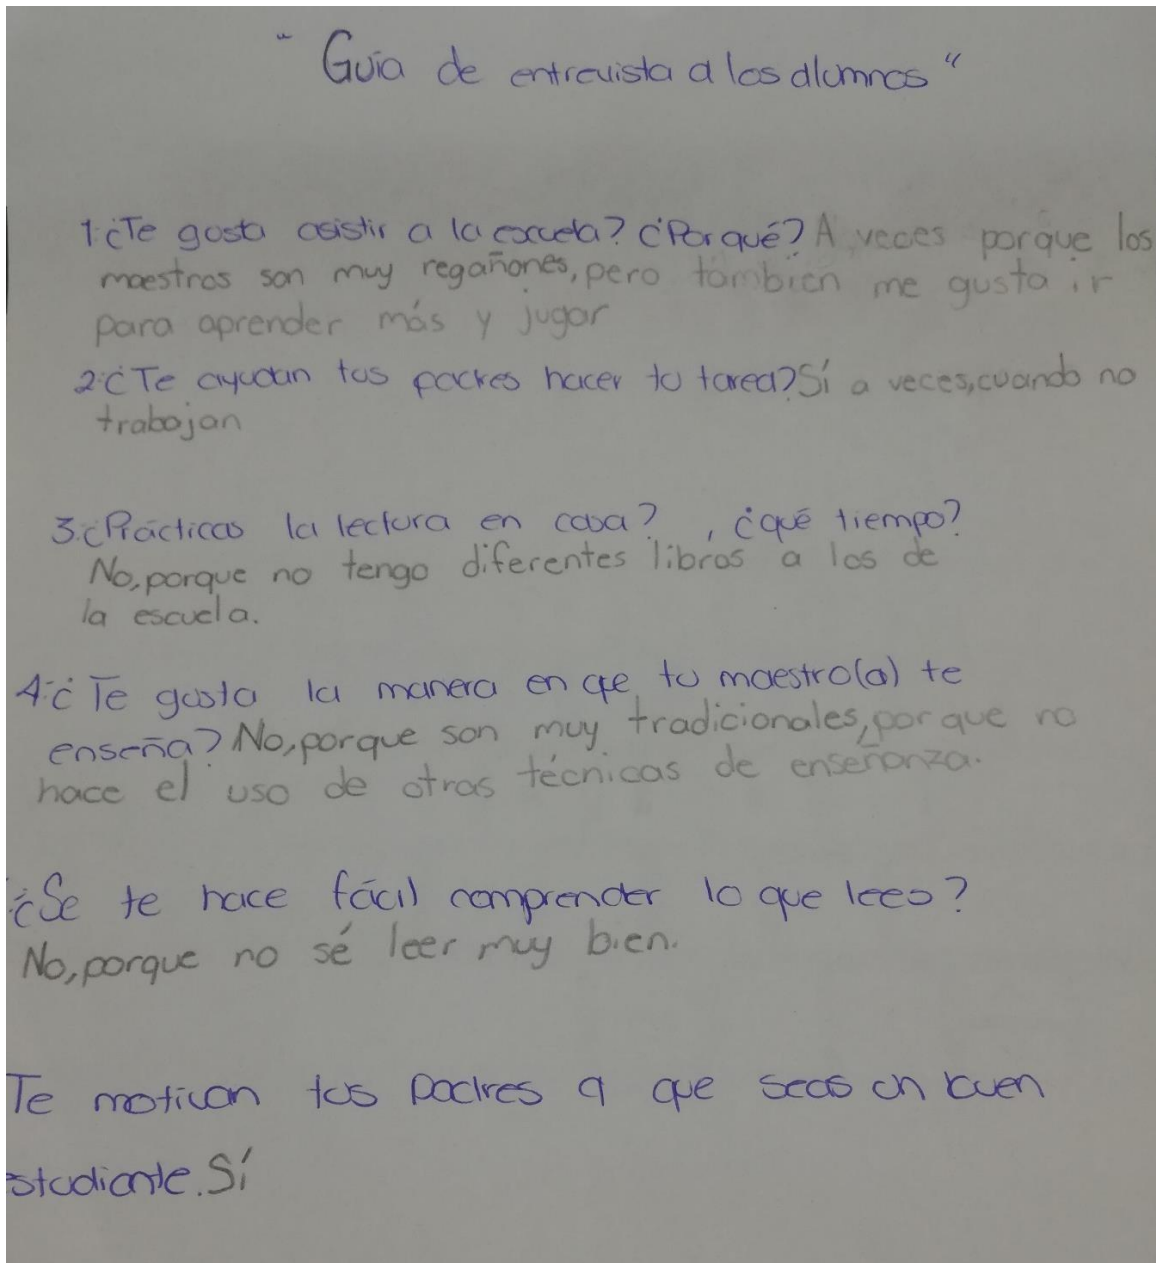 "Guia de entrevista a los alumnos"
1.¿Te gusta asistir a la escuela? ¿Por qué? A veces porque los
maestros son muy regañones, pero también me gusta ir
para aprender más y jugar
2.¿Te ayudan tus padres hacer tu tarea? Sí a veces, cuando no
trabajan
3.¿Prácticas la lectura en casa? , ¿qué tiempo?
No, porque no tengo diferentes libros a los de
la escuela.
4.¿Te gusta la manera en que tu maestro(a) te
enseña? No, porque son muy tradicionales, por que no
hace el uso de otras técnicas de enseñanza.
¿Se te hace fácil comprender lo que lees?
No, porque no sé leer muy bien.
Te motivan tus padres a que seas un buen
estudiante. Sí